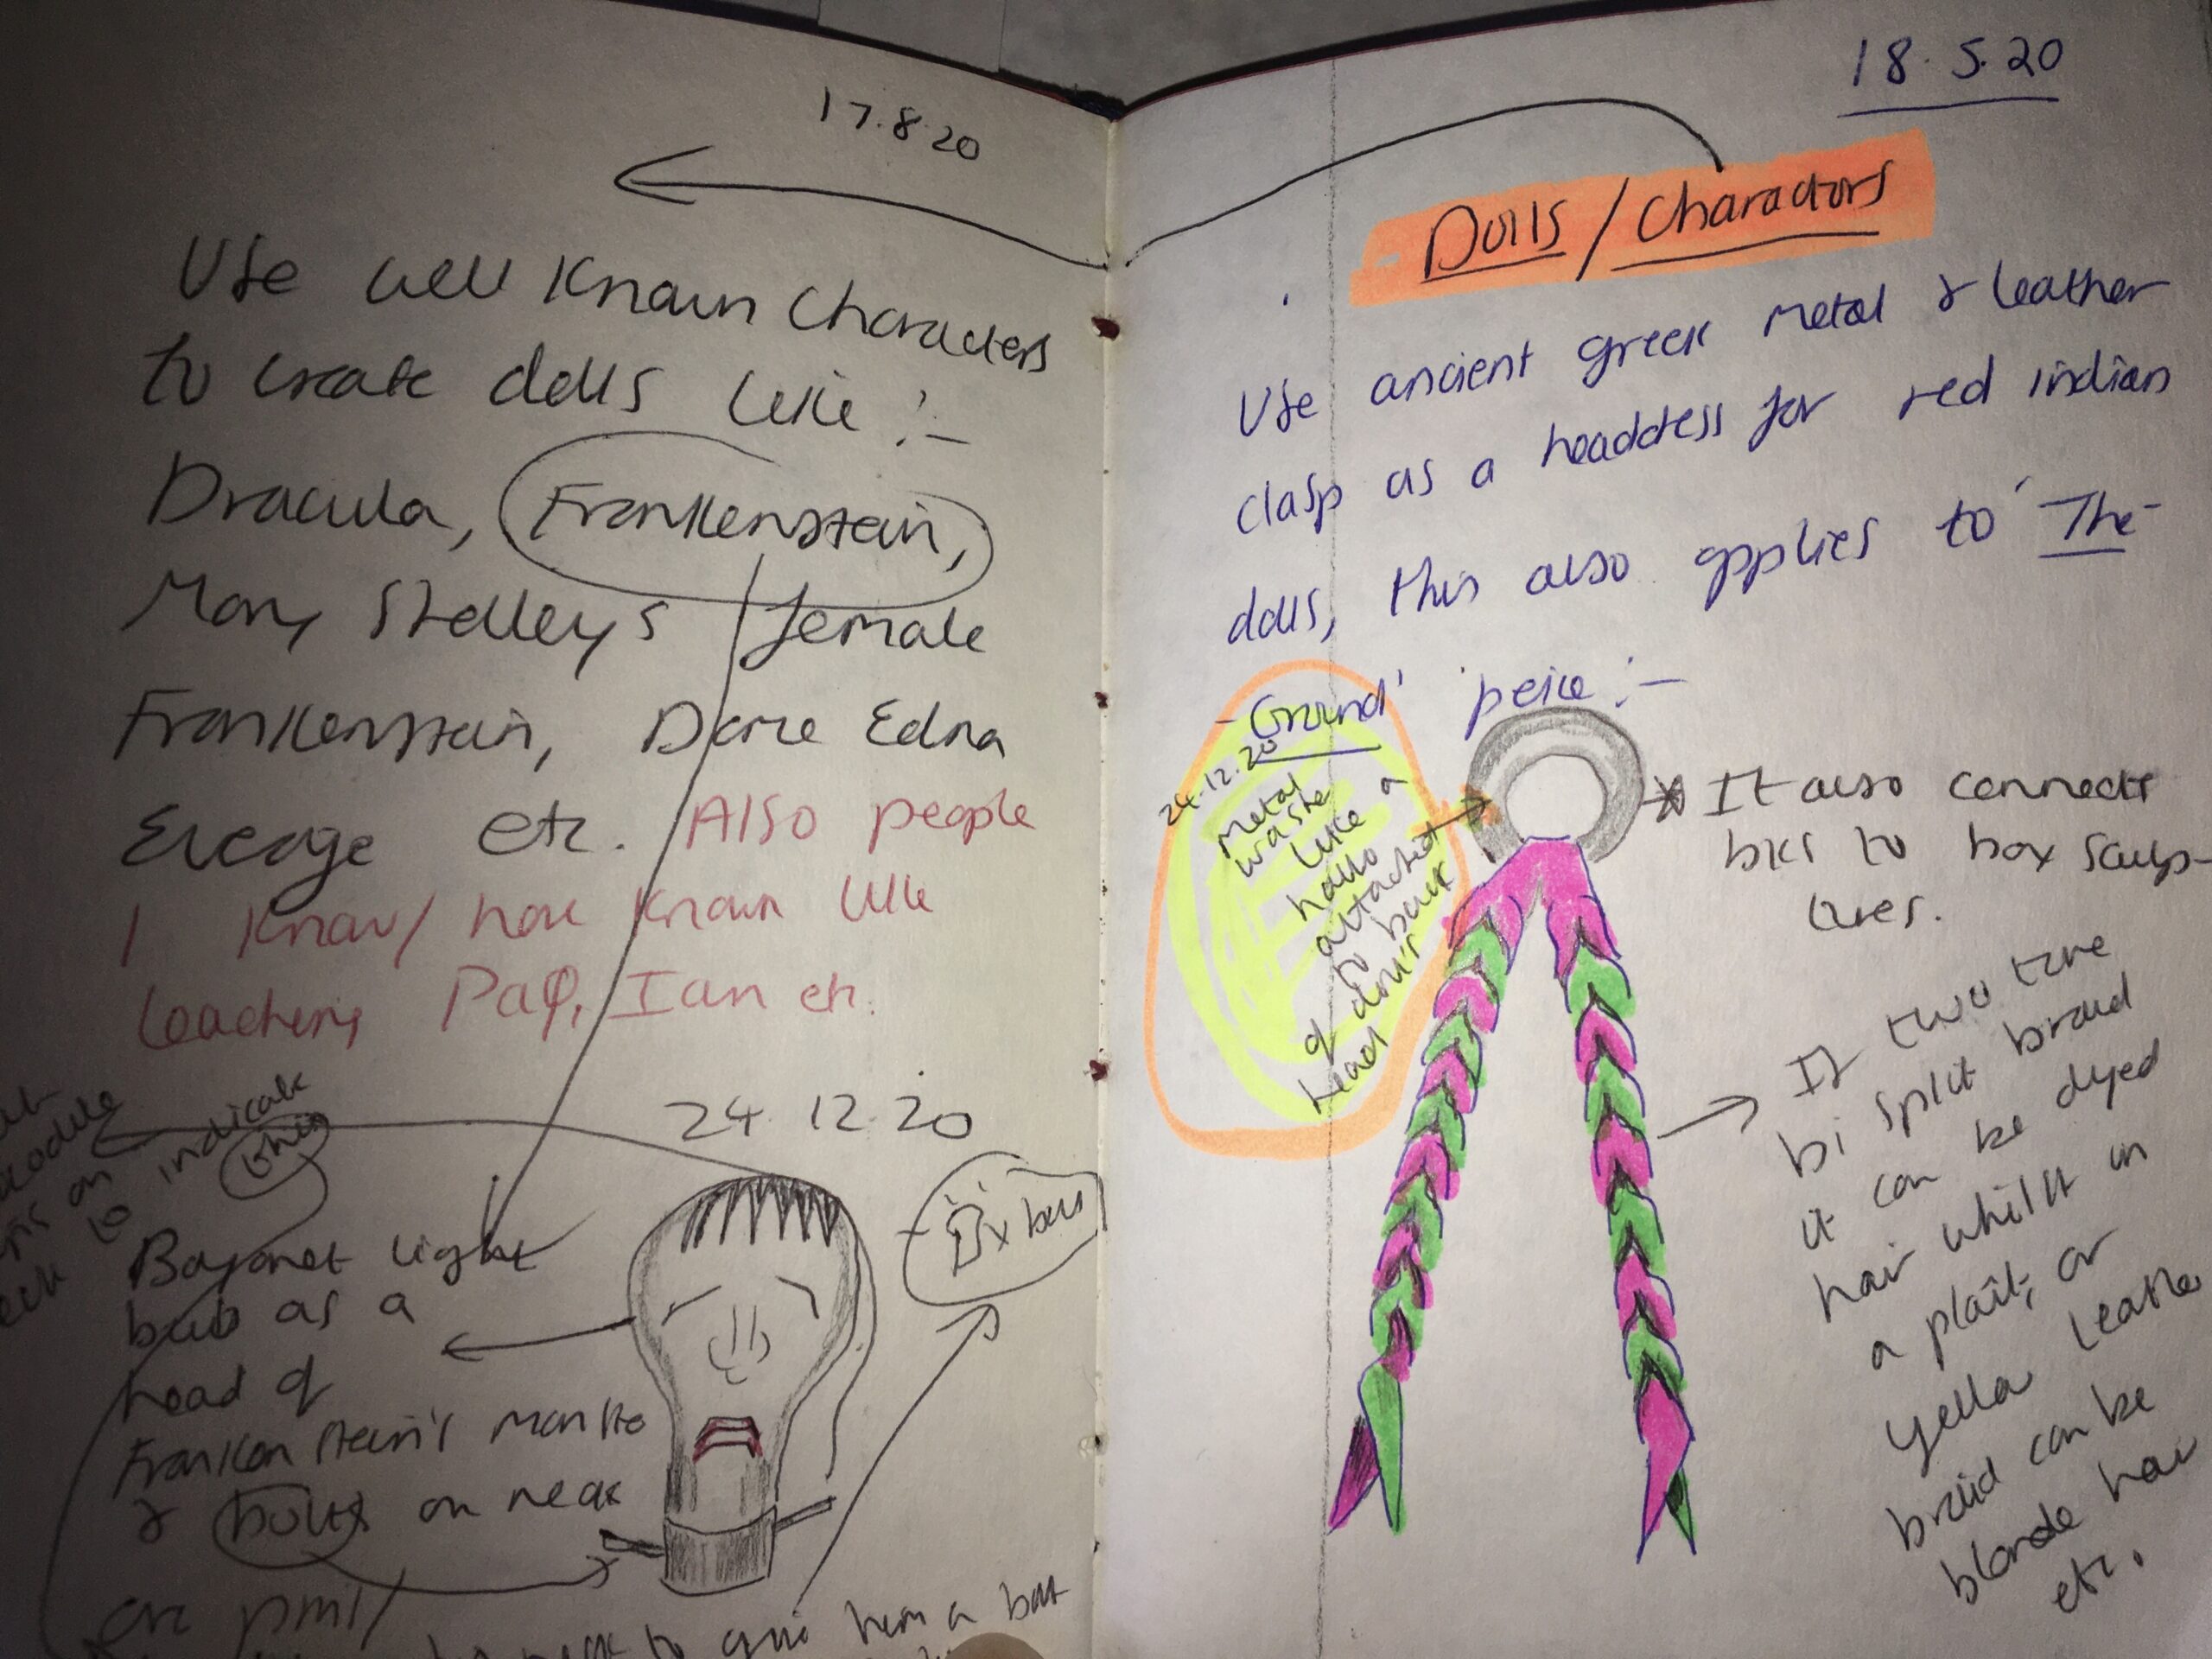 17.8.20
Use well Known Characters
to create dolls like :-
Dracula, Frankenstein,
Mary Shelleys female
Frankenstein, Dame Edna
Everage etc. Also people
I Know/ have Known like
teachers, Pap, Ian etc.
24.12.20
to indicate
this
Bayonet light
bulb as a
head of
Frankenstein's monste
& bolts on neck
are pins/
to give him a bolt
18.5.20
Dolls/Charactors
Use ancient greek metal & leather
clasp as a headdress for red indian
dolls, this also applies to 'The-
-Ground' peice :-
24.12.20
Metal
washer
like a
hallo
attached
to back
of doll's
head
It also connects
bits to box sculp-
tures.
If two tone
bi split braid
it can be dyed
hair whilst in
a plait, or
yellow leather
braid can be
blonde hair
etc.